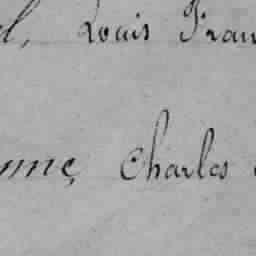 Louis Fran
Charles